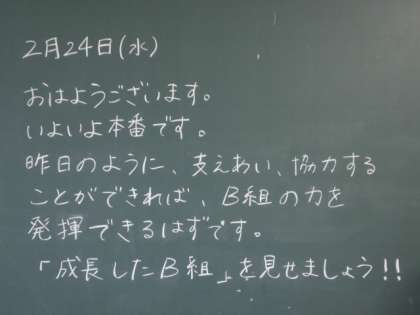 2月24日(水)
おはようございます。
いよいよ本番です。
昨日のように、支えあい、協力する
ことができれば、B組の力を
発揮できるはずです。
「成長したB組」を見せましょう!!